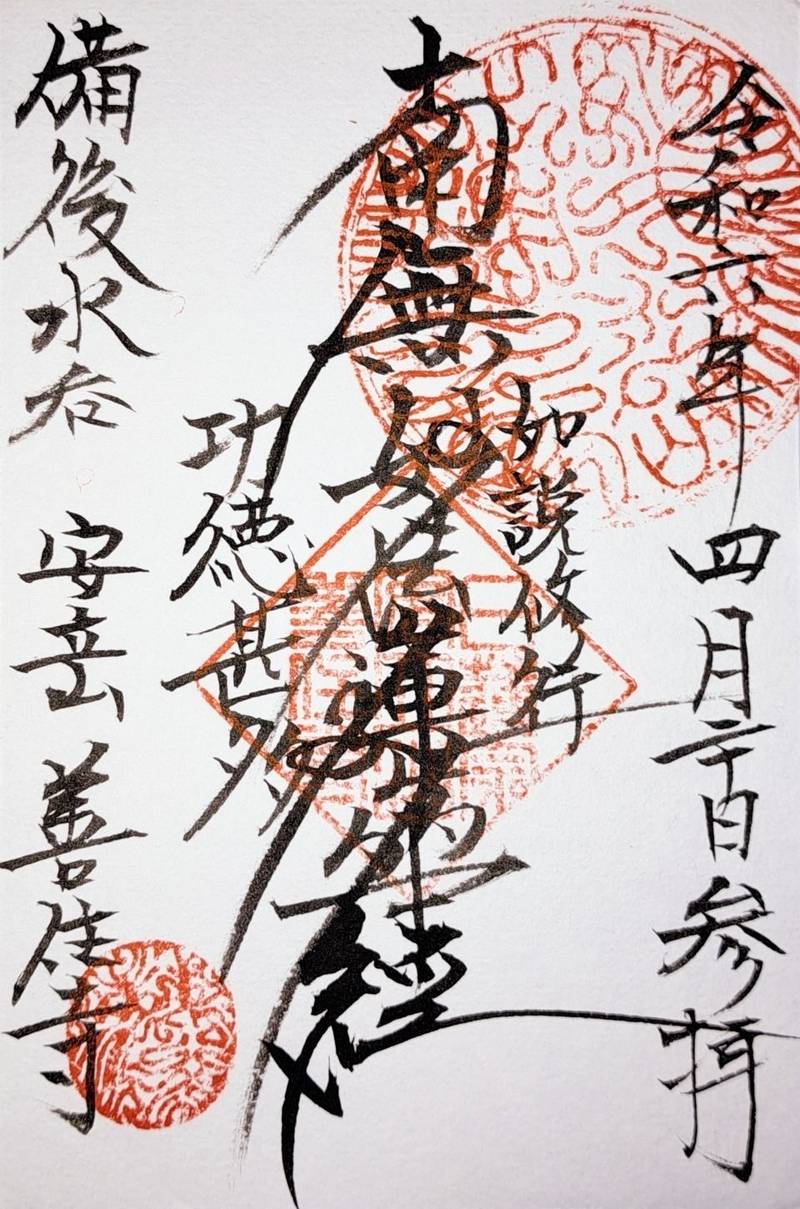 令和六年 四月二十日 参拝
如説修行
南無妙法蓮華経
功徳甚多
備後水呑 安立山 善住寺